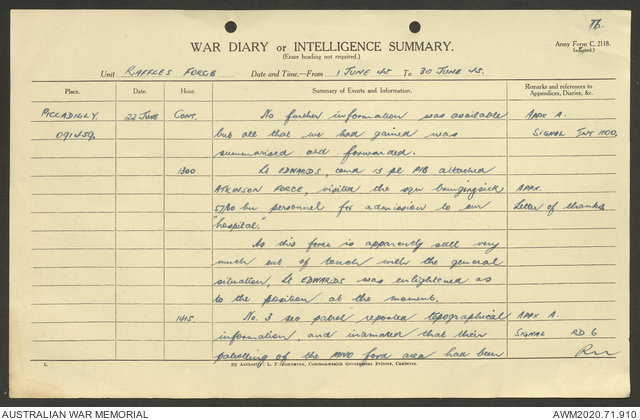 76.
WAR DIARY or INTELLIGENCE SUMMARY.
(Erase heading not required.)
Army Form C. 2118.
(adapted.)
Unit RAFFLES FORCE Date and Time.—From 1 JUNE 45 To 30 JUNE 45.
Place. Date. Hour. Summary of Events and Information. Remarks and references to
Appendices, Diaries, &c.
PICCADILLY 22 JUNE CONT. No further information was available APPX A.
091459. but all that we had gained was SIGNAL INT 1100.
summarised and forwarded.
1300 Lt EDWARDS, comd 13 pl PIB attached
ATKINSON FORCE, visited the bringing sick APPX.
57/60 bn personnel for admission to our Letter of thanks
"hospital."
As this force is apparently still very
much out of touch with the general
situation, Lt EDWARDS was enlightened as
to the position at the moment.
1415. No. 3 sec patrol reported topographical APPX A
information, and intimated that their SIGNAL RD 6
patrolling of the MIVO ford area had been
L. By Authority: L. F. Johnston, Commonwealth Government Printer, Canberra.
AUSTRALIAN WAR MEMORIAL AWM2020.71.910